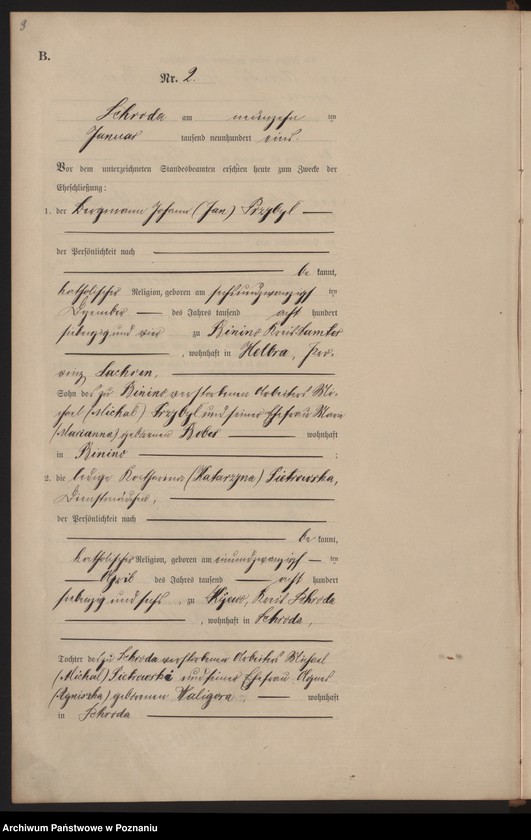 9
B.
Nr. 2.
Schroda am neunzehn ten
Januar tausend neunhundert eins.
Vor dem unterzeichneten Standesbeamten erschien heute zum Zwecke der
Eheschließung:
1. der Bergmann Johann (Jan) Przybyl
der Persönlichkeit nach
be kannt,
katholischer Religion, geboren am sechsundzwanzigs ten
Dezember des Jahres tausend acht hundert
siebenzig und vier zu Binino Kreis Samter
, wohnhaft in Helbra, Pro-
vinz Sachsen,
Sohn des zu Binino verstorbenen Arbeiters Mi-
chael (Michal) Przybyl und seiner Ehefrau Marie
(Marianna) geborenen Bober wohnhaft
in Binino ;
2. die ledige Katharina (Katarzyna) Pietrowska,
Dienstmädchen,
der Persönlichkeit nach
be kannt,
katholischer Religion, geboren am einundzwanzigs ten
April des Jahres tausend acht hundert
siebenzig und sechs zu Kijewo, Kreis Schroda
, wohnhaft in Schroda,
Tochter des zu Schroda verstorbenen Arbeiters Michael
(Michal) Pietrowski und seiner Ehefrau Agnes
(Agnieszka) geborenen Waligora wohnhaft
in Schroda
Archiwum Państwowe w Poznaniu